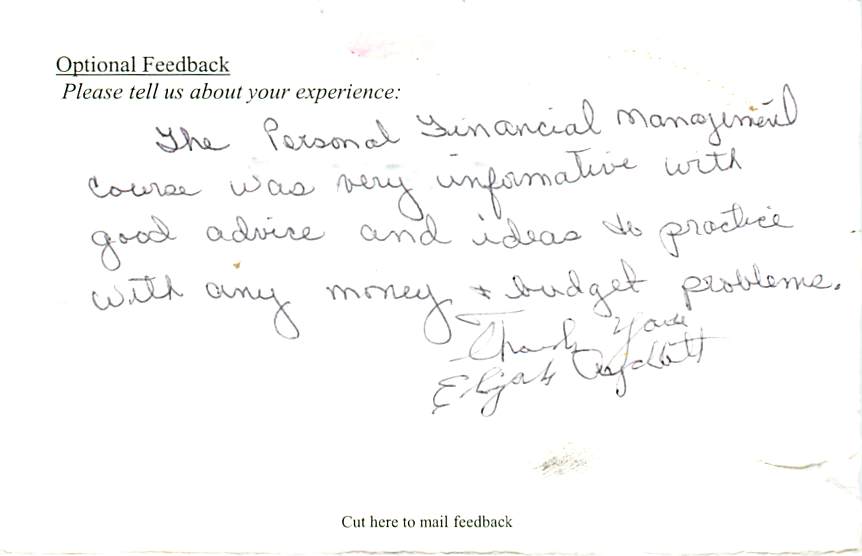 Optional Feedback
Please tell us about your experience:
The Personal Financial Management
course was very informative with
good advice and ideas to practice
with any money + budget problems.
Thank you
Elijah
Cut here to mail feedback